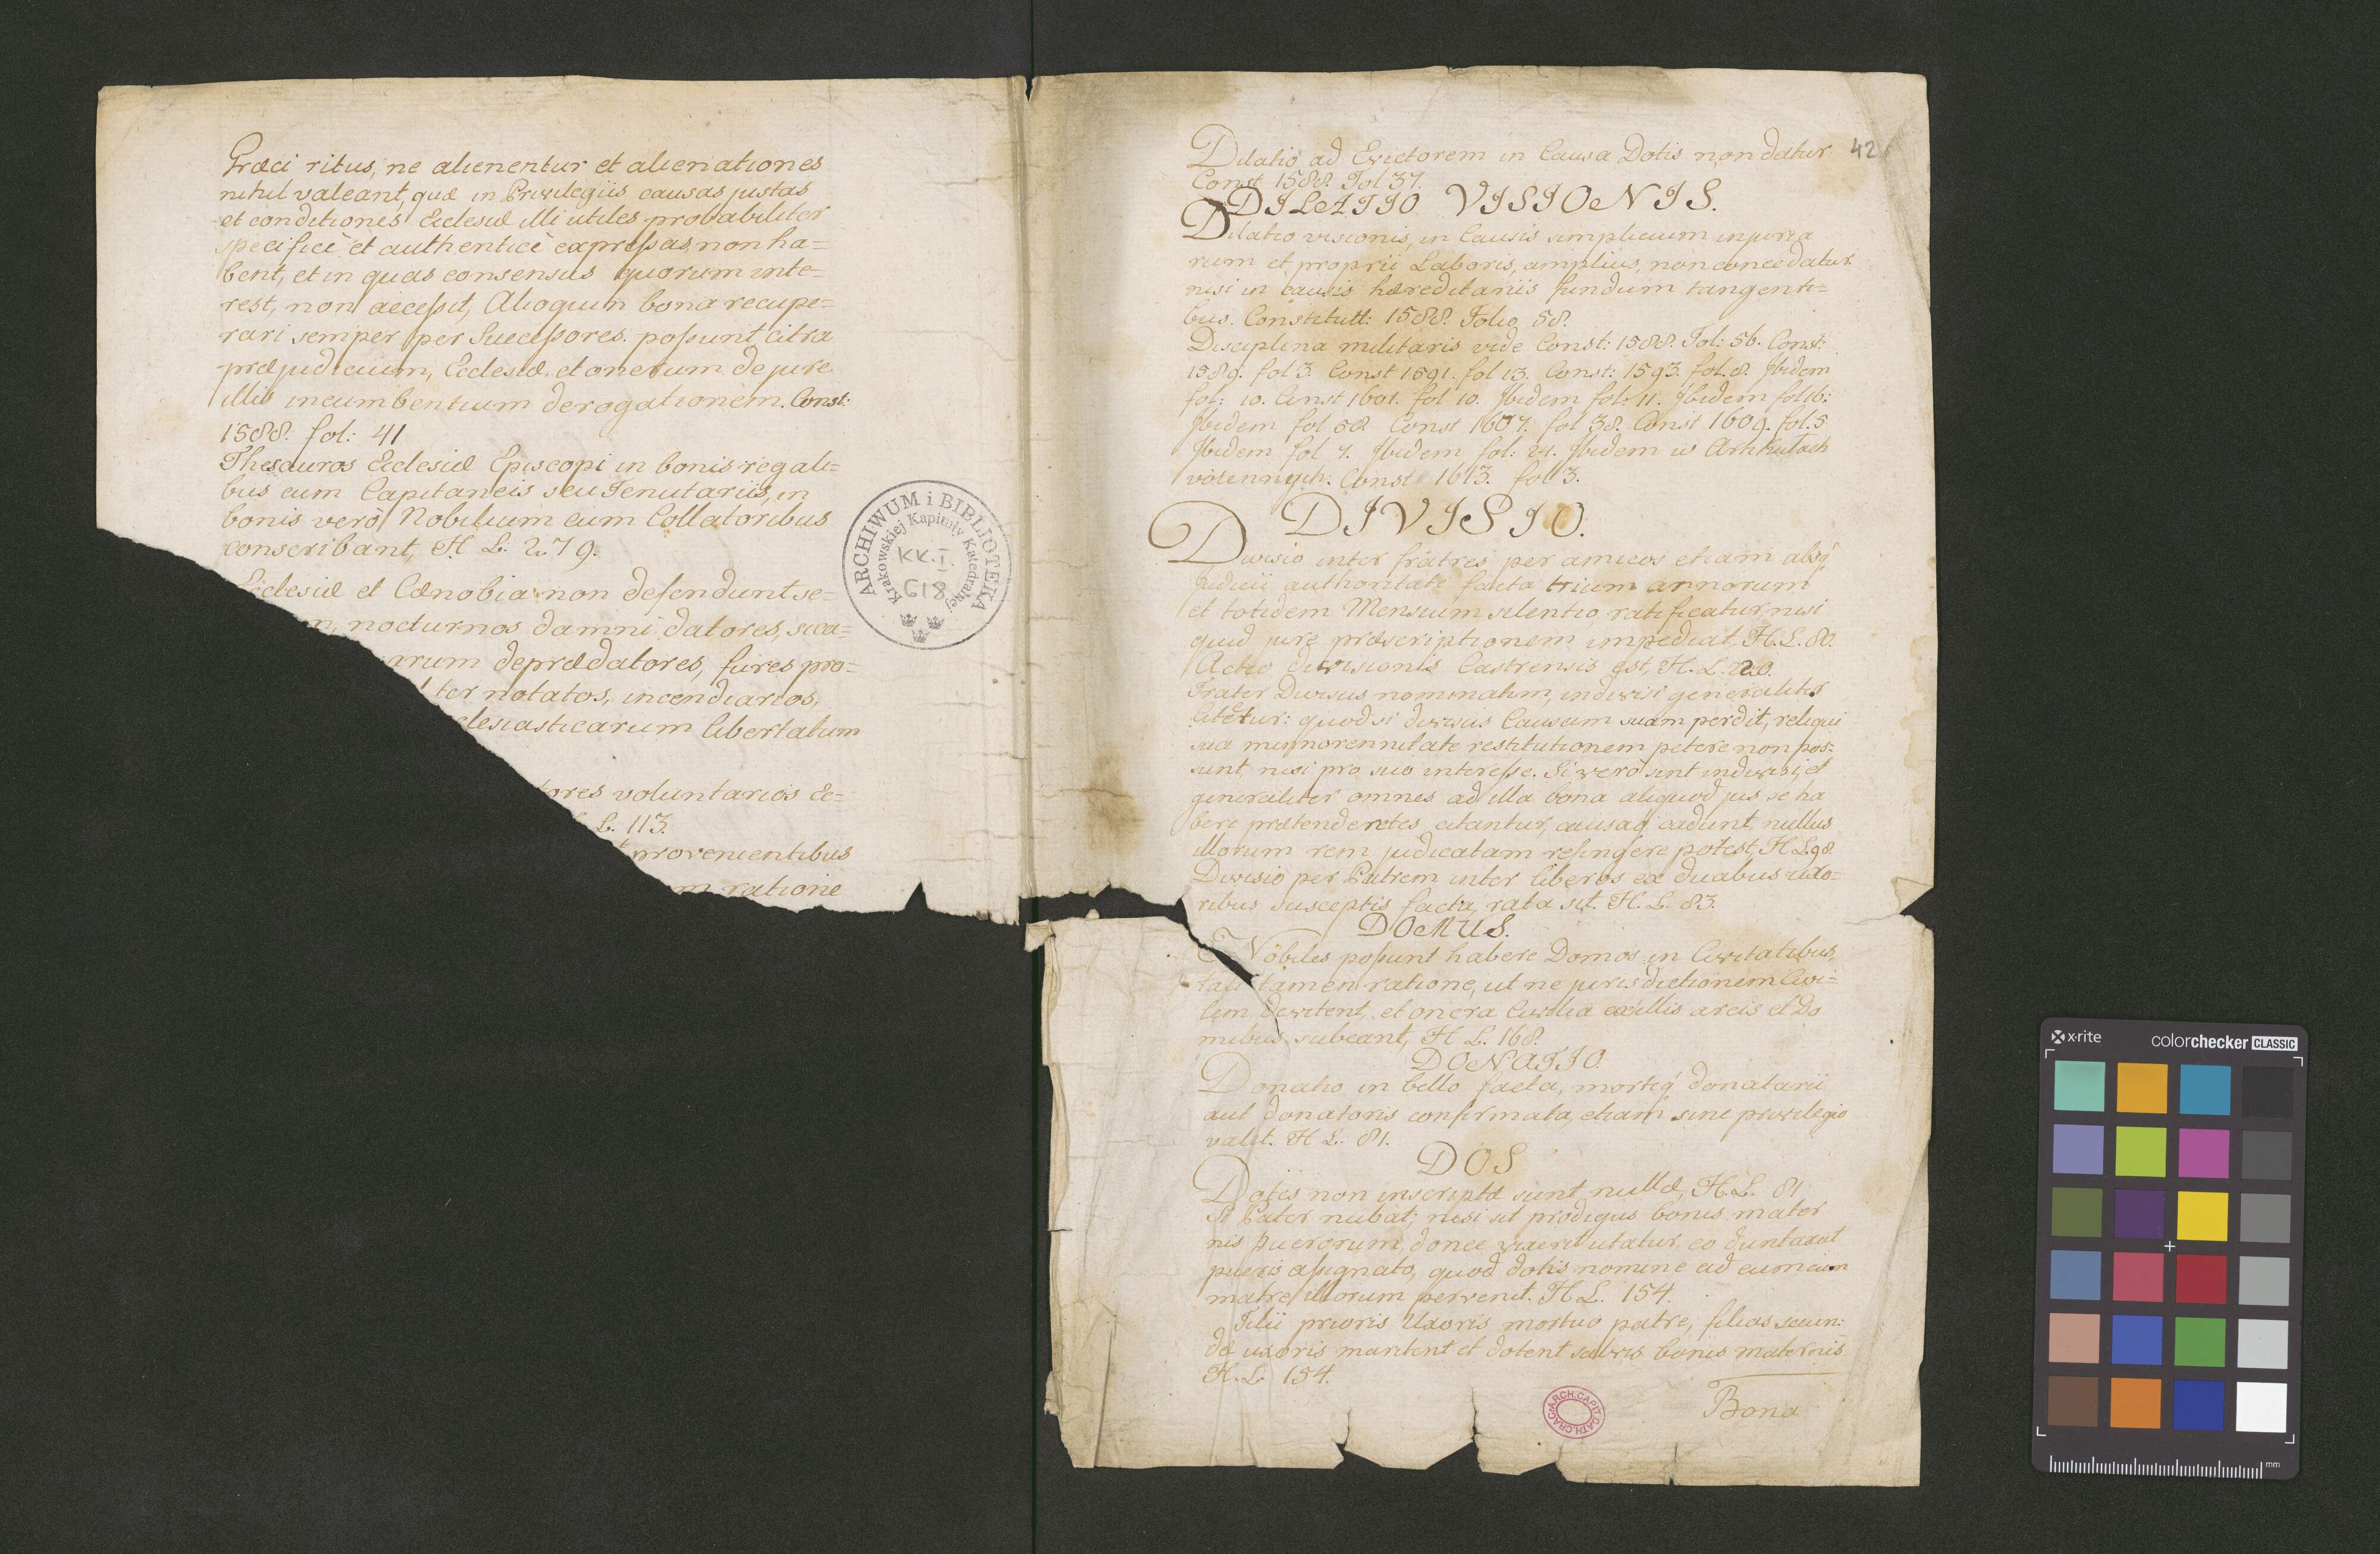 Græci ritus, ne alienentur et alienationes
nihil valeant, quæ in Privilegiis causas justas
et conditiones Ecclesiæ illi utiles probabiliter
specificè et authenticè expressas non ha=
bent, et in quas consensus quorum inte=
rest, non accessit, Alioquin bona recupe=
rari semper per Successores possunt citra
præjudicium, Ecclesiæ et onerum de jure
illis incumbentium derogationem. Const:
1588. fol: 41
Thesauros Ecclesiæ Episcopi in bonis regali=
bus cum Capitaneis seu Tenutariis, in
bonis verò Nobilium cum Collatoribus
conscribant, H. L. 279.
Ecclesiæ et Cænobia non defendunt se=
nocturnos damni datores,
arum deprædatores, fures pro=
ter notatos, incendiarios,
clesiasticarum libertatum
tores voluntarios Ec=
L. 113.
provenientibus
m ratione
ARCHIWUM i BIBLIOTEKA
Krakowskiej Kapituły Katedralnej
KK. I.
618
42
Dilatio ad Evictorem in Causa Dotis non datur
Const 1588. Fol 37.
DILATIO VISIONIS.
Dilatio visionis, in Causis simplicium injuria
rum et proprii Laboris, amplius, non concedatur
nisi in causis hæreditariis fundum tangenti=
bus. Constitutt: 1588. Folio 58.
Disciplina militaris vide Const: 1588. Fol: 56. Const:
1589. fol 3. Const 1591. fol 13. Const: 1593. fol. 8. Ibidem
fol: 10. Const 1601. fol 10. Ibidem fol: 11. Ibidem fol 16:
Ibidem fol 58. Const 1607. fol 38. Const 1609. fol. 5
Ibidem fol 7. Ibidem fol: 24. Ibidem w Artikułach
voiennych. Const 1613. fol 3.
DIVISIO.
Divisio inter fratres per amicos etiam absq
Judicii authoritate facta trium annorum
et totidem Mensium silentio ratificatur nisi
quid jure præscriptionem impediat, H. L. 80.
Actio divisionis Castrensis est, H. L. 220.
Frater Divisus nominatim, indivisi generaliter
citetur: quod si divisus Causam suam perdit, reliqui
sua minorennitate restitutionem petere non pos:
sunt, nisi pro suo interesse. Si verò sint indivisi, et
generaliter omnes ad illa bona aliquod jus se ha
bere prætendentes citantur, causaq cadunt, nullus
illorum rem judicatam refingere potest, H L. 98.
Divisio per Patrem inter liberos ex duabus uxo=
ribus susceptis facta, rata sit. H. L. 83.
DOMUS.
Nobiles possunt habere Domos in Civitatibus,
tali tamen ratione, ut ne jurisdictionem Civi=
lem devitent, et onera Civilia ex illis areis et Do
mibus subeant, H L. 168.
DONATIO.
Donatio in bello facta, mortiq donatarii
aut donatoris confirmata, etiam sine privilegio
valet. H L. 81.
DOS
Dotes non inscriptæ sunt nullæ, H. L. 81
Si Pater nubat; nisi sit prodigus bonis mater
nis puerorum, donec vixerit utatur eo duntaxat
pueris assignato, quod dotis nomine ad eum cum
matre illorum pervenit. H L. 154.
Filii prioris Uxoris mortuo patre, filias secun:
dæ uxoris maritent et dotent salvis bonis maternis
H. L. 154.
Bona
ARCH. CAPIT. CATH. CRAC.
x-rite
colorchecker CLASSIC
mm